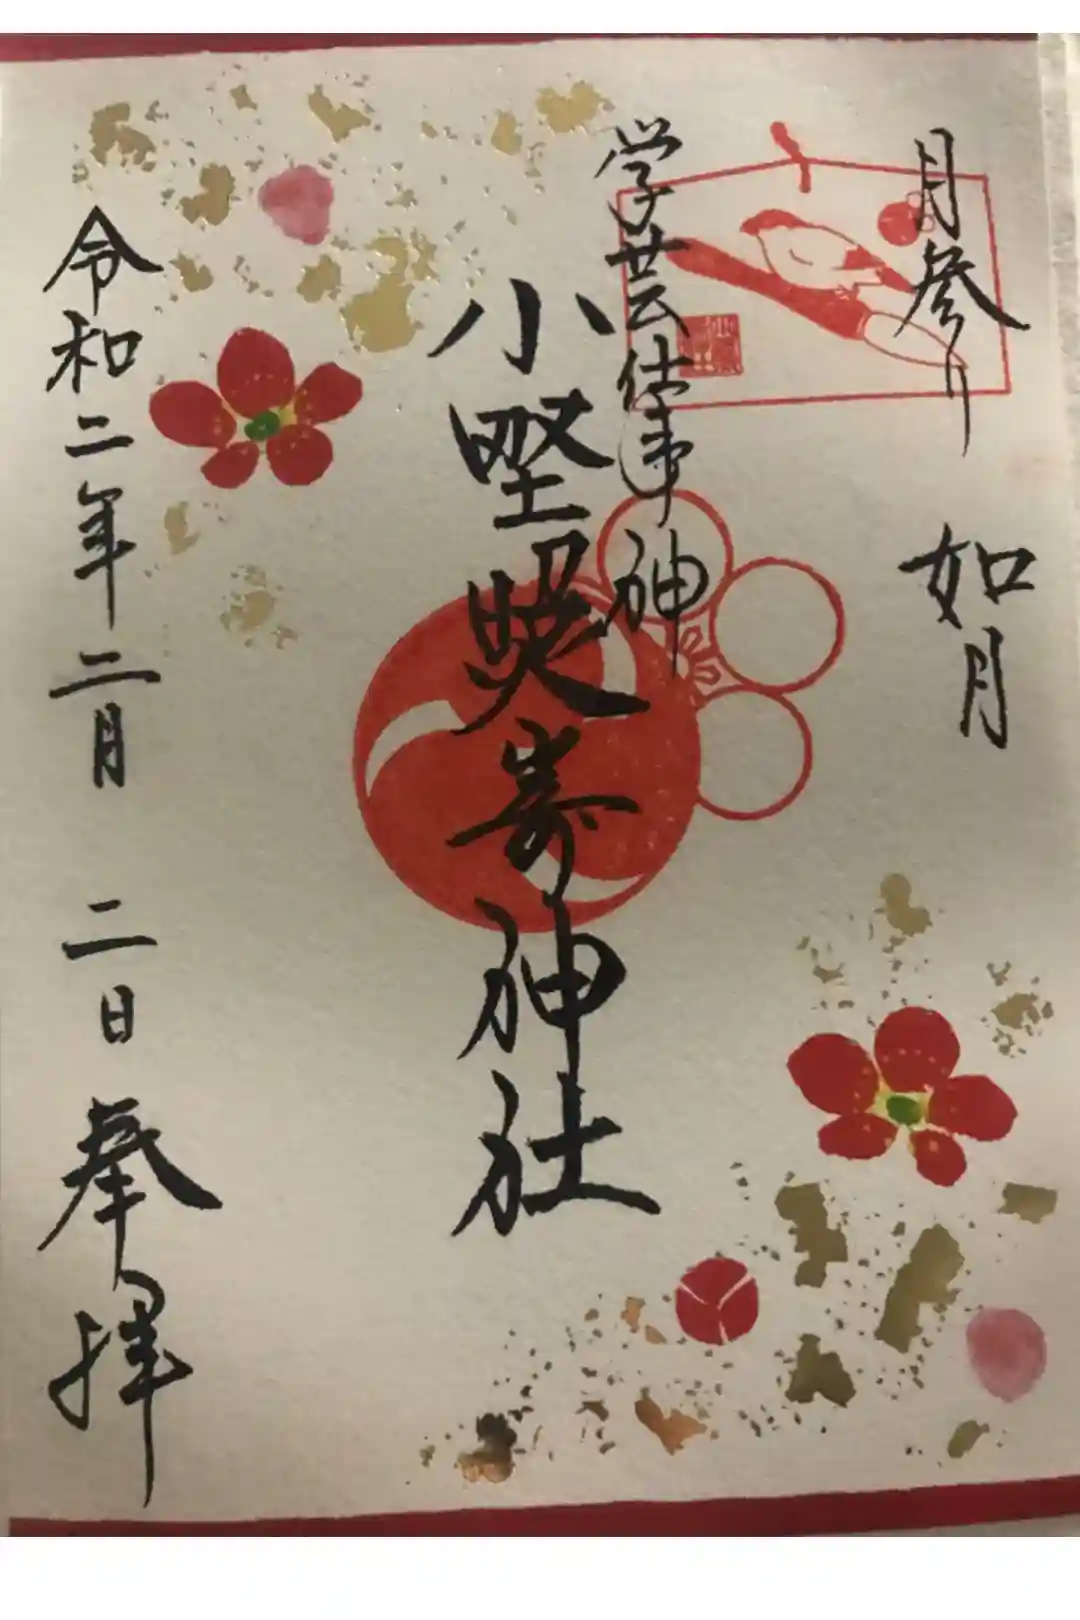 月参り　如月
学芸仕事神
小野照崎神社
令和二年二月　二日　奉拝